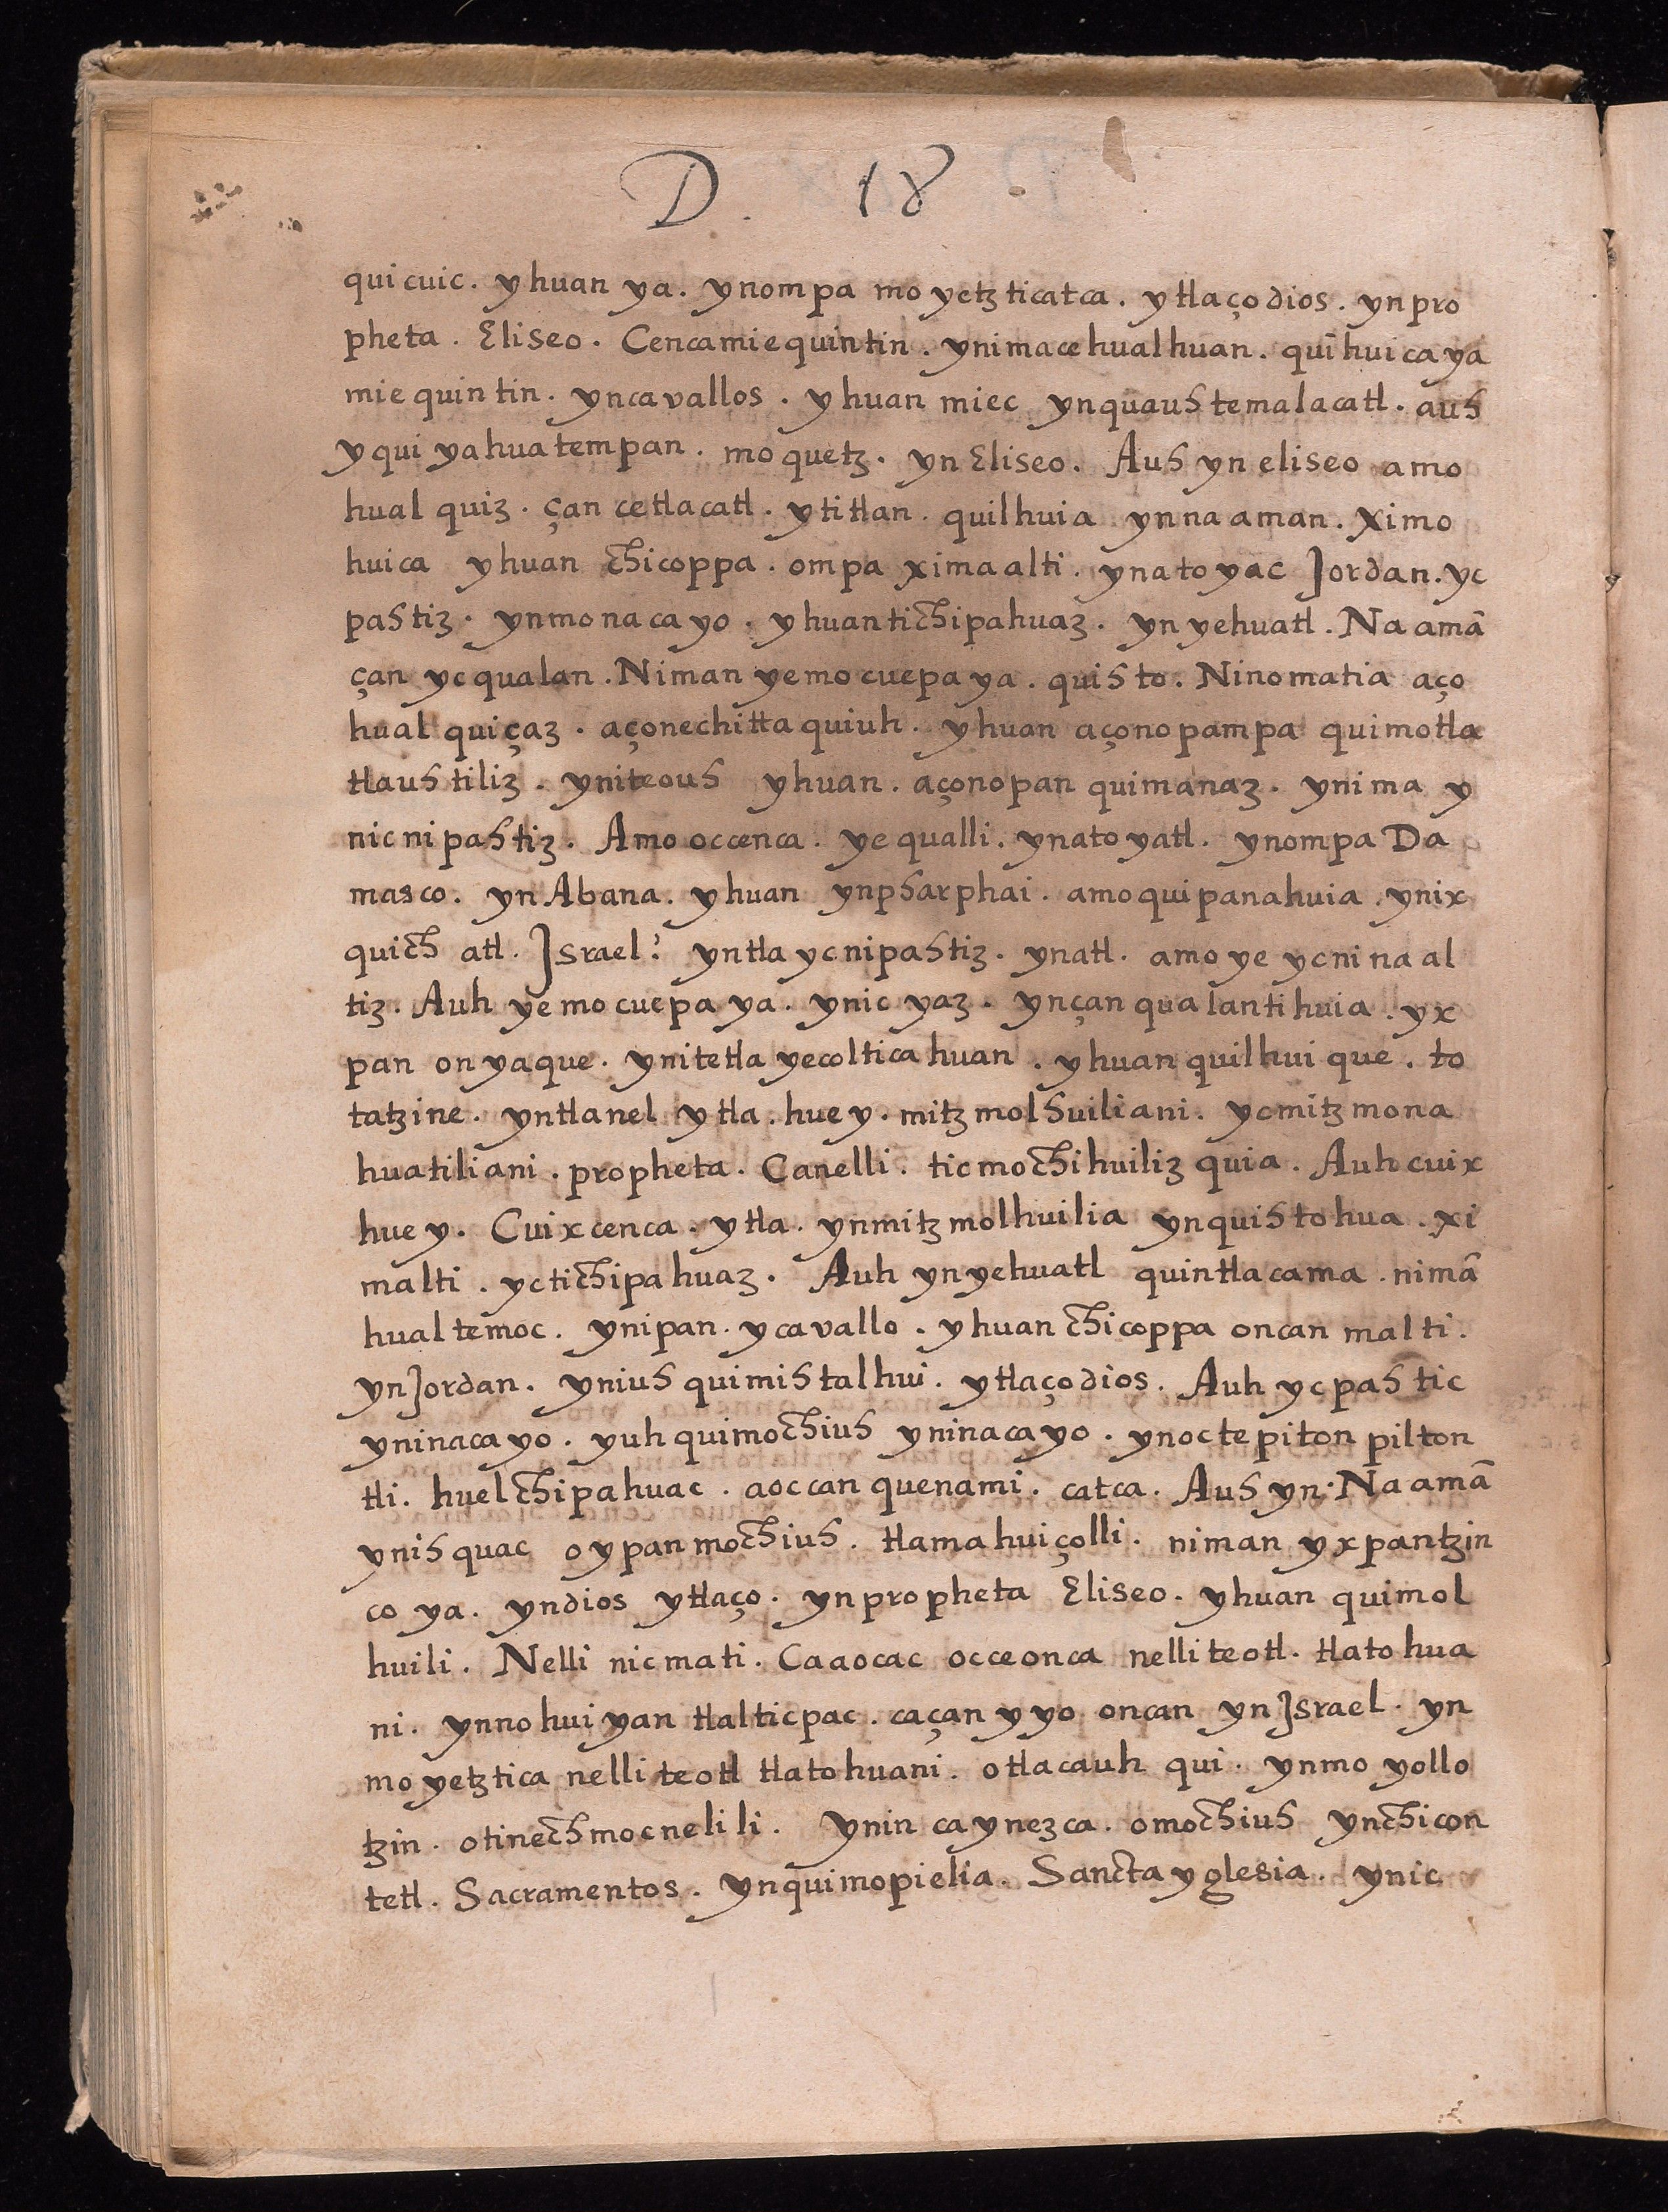 D. 18
quicuic. yhuan ya. ynompa moyetzticatca. ytlaçodios. ynpro
pheta. Eliseo. Cencamiequintin. ynimacehualhuan. quīhuicaya
miequintin. yncavallos. yhuan miec ynquauhtemalacatl. auh
yquiyahuatempan. moquetz. yn Eliseo. Auh yn eliseo amo
hualquiz. çan cetlacatl. ytitlan. quilhuia ynnaaman. Ximo
huica yhuan chicoppa. ompa ximaalti. ynatoyac Jordan. yc
pahtiz. ynmonacayo. yhuantichipahuaz. ynyehuatl. Naamā
çan ycqualan. Niman yemocuepaya. quihto. Ninomatia aço
hualquiçaz. açonechittaquiuh. yhuan açonopampa quimotla
tlauhtiliz. yniteouh yhuan. açonopan quimanaz. ynima y
nicnipahtiz. Amo occenca. yequalli. ynatoyatl. ynompa Da
masco. yn Abana. yhuan ynpharphai. amoquipanahuia. ynix
quich atl. Jsrael? yntla ycnipahtiz. ynatl. amo ye ycninaal
tiz. Auh yemocuepaya. ynic yaz. ynçanqualantihuia. yx
pan onyaque. ynitetlayecolticahuan. yhuan quilhuique. to
tatzine. yntlanel ytla. huey. mitzmolhuiliani. ycmitzmona
huatiliani. propheta. Canelli. ticmochihuilizquia. Auh cuix
huey. Cuixcenca. ytla. ynmitzmolhuilia ynquihtohua. xi
malti. yctichipahuaz. Auh ynyehuatl quintlacama. nimā
hualtemoc. ynipan. ycavallo. yhuan chicoppa oncan malti.
ynJordan. yniuh quimihtalhui. ytlaçodios. Auh ycpahtic
yninacayo. yuhquimochiuh yninacayo. ynoctepiton pilton
tli. huelchipahuac. aoccan quenami. catca. Auh yn. Naamā
ynihquac oypanmochiuh. tlamahuiçolli. niman yxpantzin
co ya. yndios ytlaço. ynpropheta Eliseo. yhuan quimol
huili. Nelli nicmati. Caaocac occeonca nelliteotl. tlatohua
ni. ynnohuiyan tlalticpac. caçanyyo oncan ynJsrael. yn
moyetztica nelliteotl tlatohuani. otlacauhqui. ynmoyollo
tzin. otinechmocnelili. Ynin caynezca. omochiuh ynchicon
tetl. Sacramentos. Ynquimopielia. Sanctayglesia. ynic